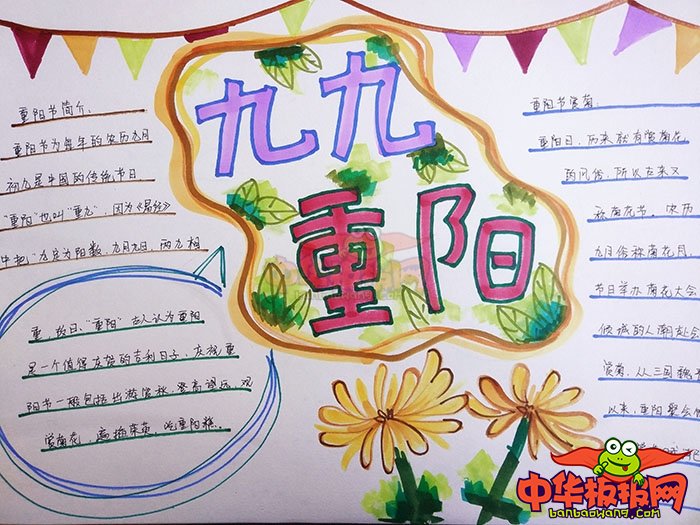 九九
重阳
重阳节简介:
重阳节为每年的农历九月
初九是中国的传统节日
"重阳"也叫"重九",因为《易经》
中把"九定为阳数,九月九日,两九相
重,故曰"重阳"古人认为重阳
是一个值得庆贺的吉利日子,庆祝重
阳节一般包括出游赏秋,登高望远,观
赏菊花,遍插茱萸,吃重阳糕。
重阳节赏菊:
重阳日,历来就有赏菊花
的风俗,所以古来又
称菊花节。农历
九月俗称菊花月,
节日举办菊花大会
倾城的人潮赴会
赏菊,从三国魏
以来,重阳聚会
中华板报网
banbaowang.com